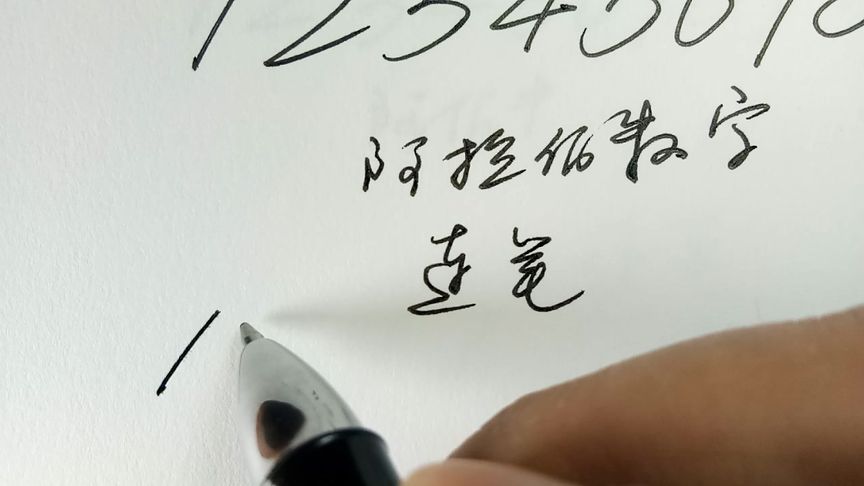 12345678
阿拉伯数字
连笔
1